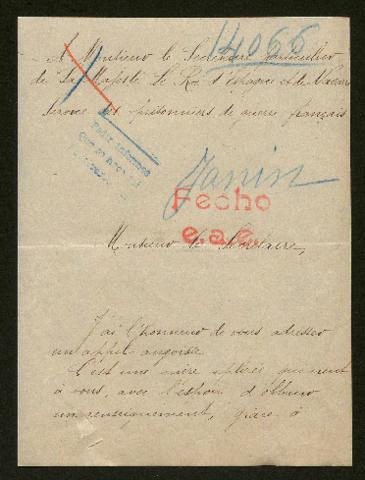 14066
A Monsieur le Secrétaire particulier
de Sa Majesté Le Roi d'Espagne et de
Service des prisonniers de guerre français
Pedir informes
Janin
Fecho
e.a.e.
Monsieur le Secrétaire,
J'ai l'honneur de vous adresser
un appel angoissé.
C'est une mère éplorée qui vient
à vous, avec l'espoir d'obtenir
un renseignement, grâce à